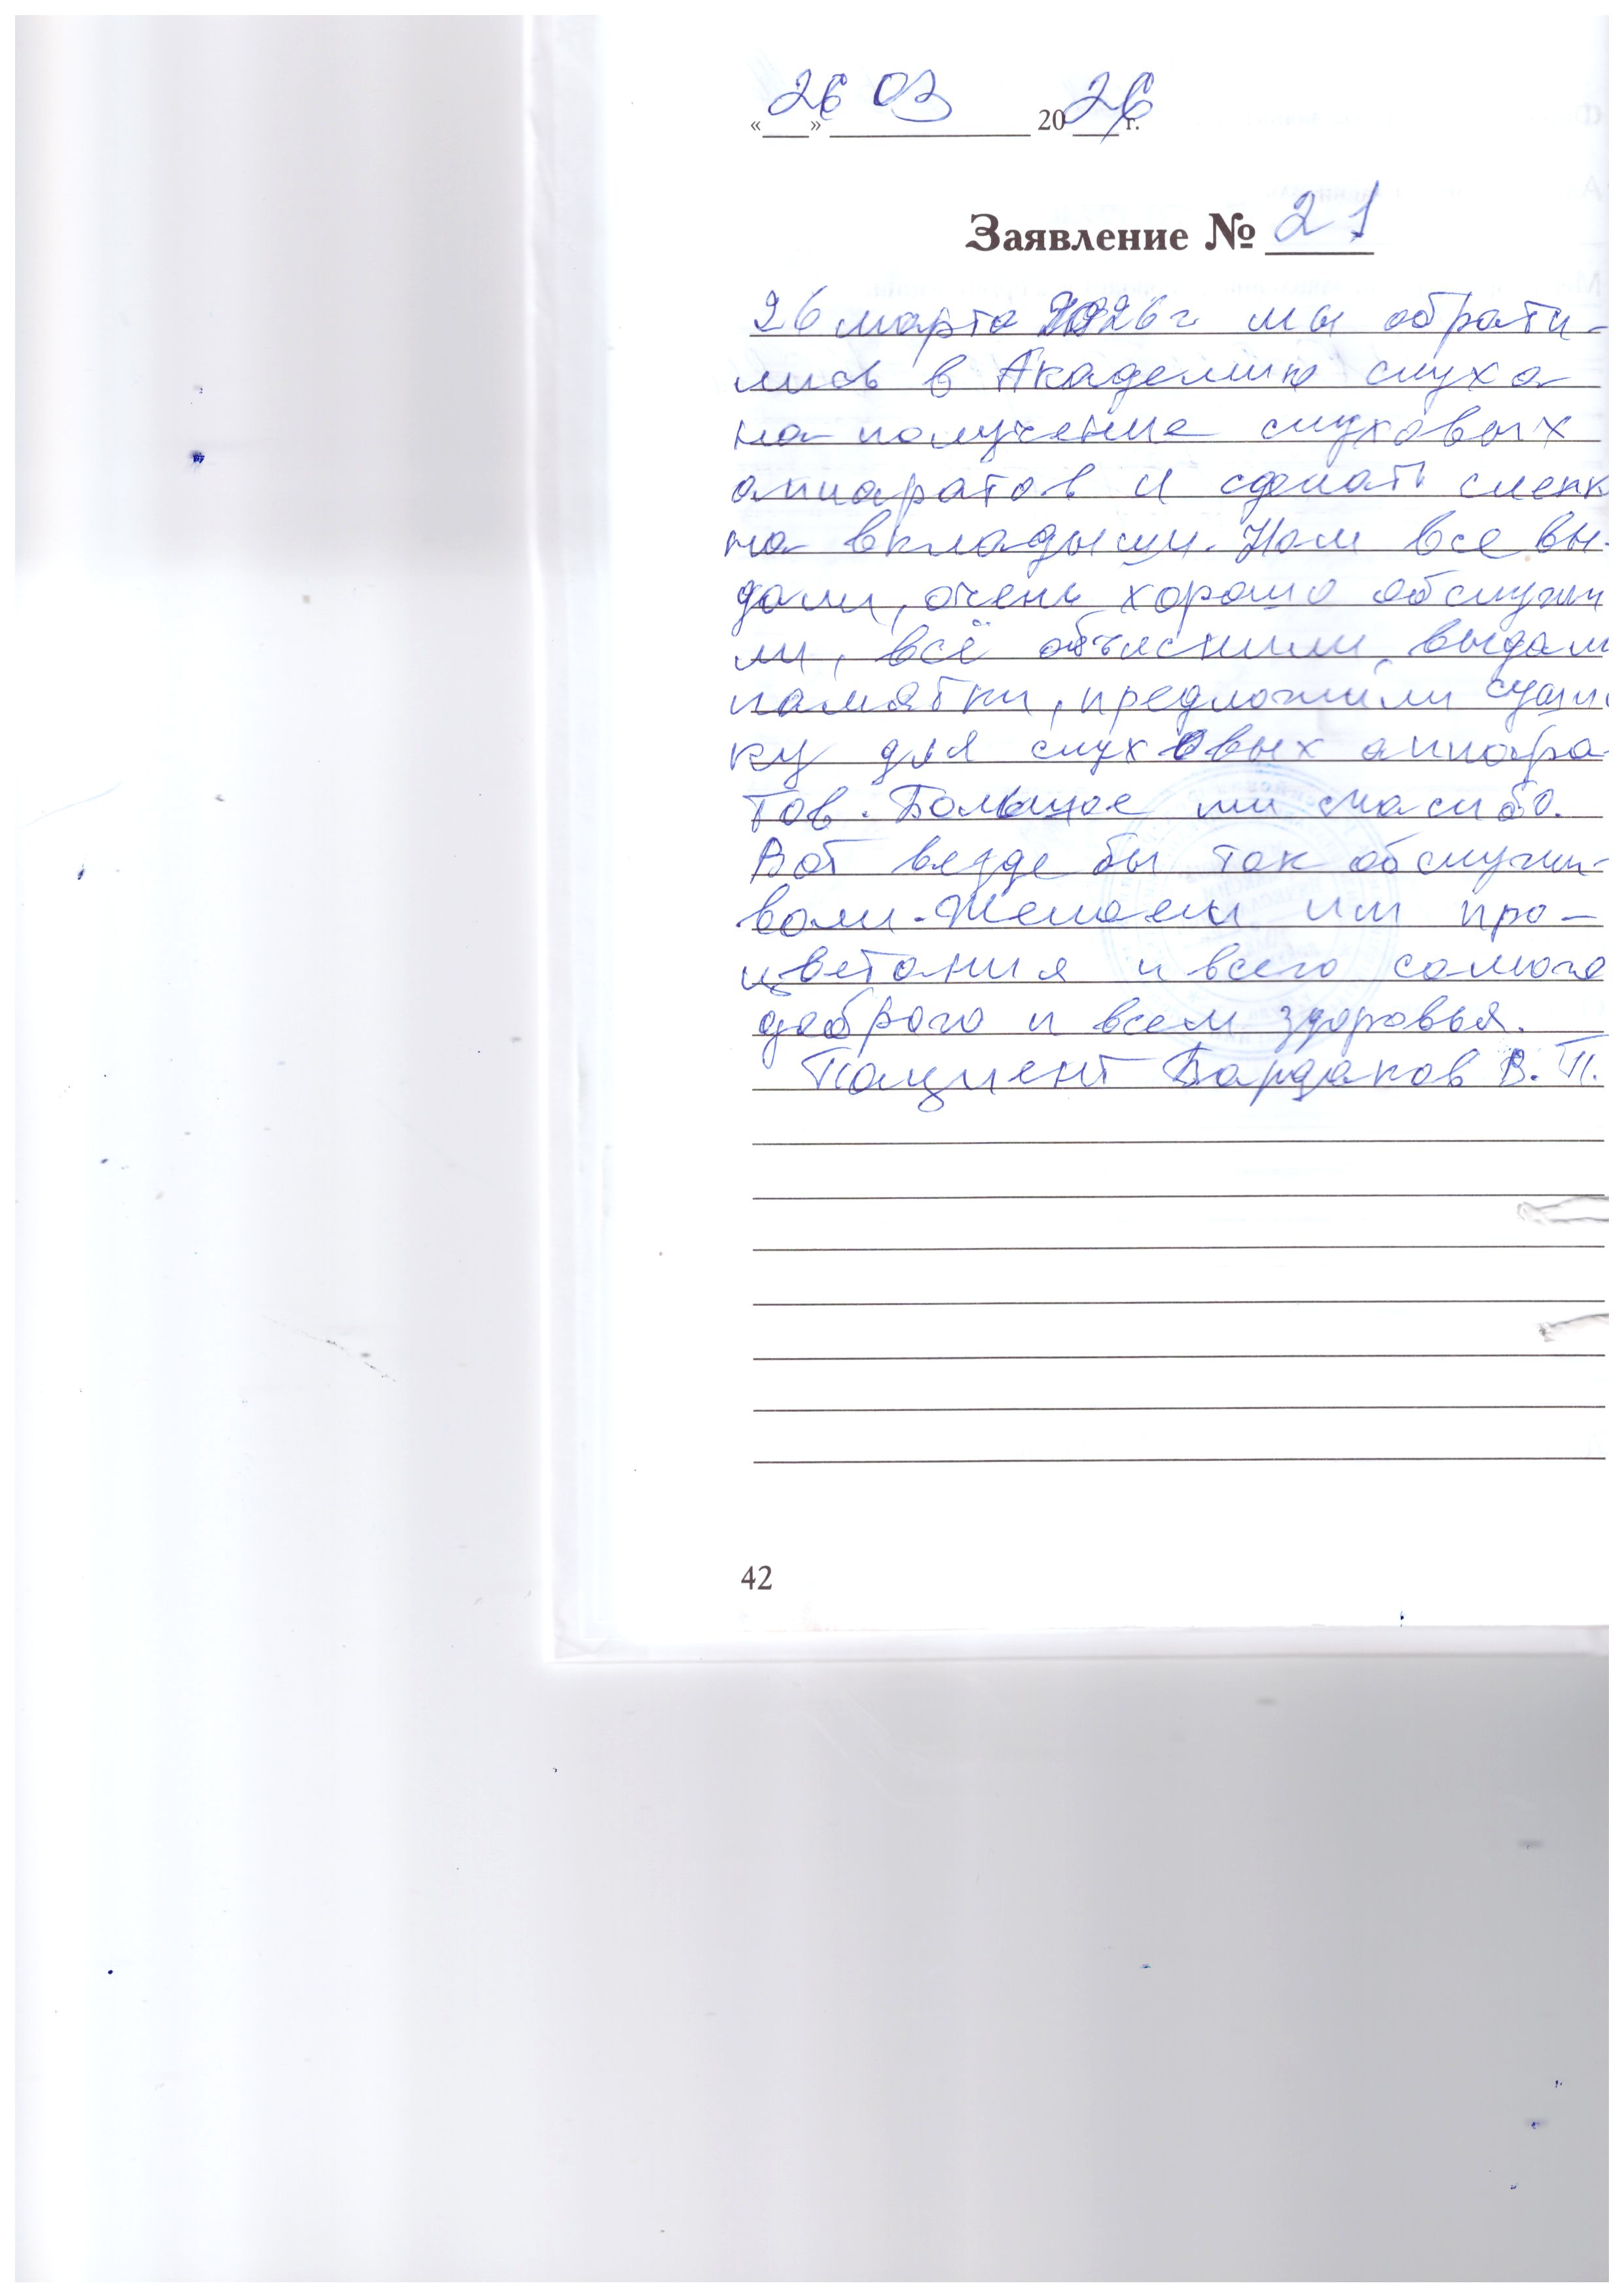 «26» 03 2026 г.
Заявление № 21
26 марта 2026 г мы обрати-
лись в Академию слуха
на получение слуховых
аппаратов и сделать слепк
на вкладыши. Нам все вы-
дали, очень хорошо обслужи
ли, всё объяснили, выдали
памятки, предложили суши
ку для слуховых аппара-
тов. Большое им спасибо.
Вот везде бы так обслужи-
вали. Желаем им про-
цветания и всего самого
доброго и всем здоровья.
Пациент Бардаков В. П.
42